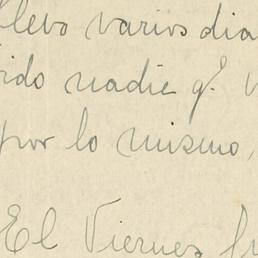 llevo varios dia
ido nadie q.
por lo mismo,
El Viernes